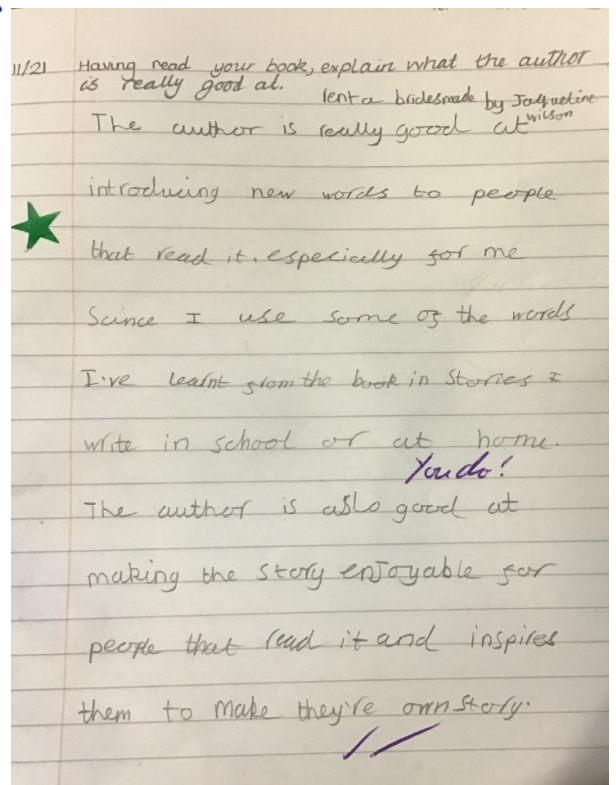 11/21 Having read your book, explain what the author
is really good at.
lent a bridesmade by Jaqueline
wilson
The author is really good at
introducing new words to people
that read it. especially for me
Scince I use some of the words
I've learnt from the book in Stories I
write in school or at home.
You do!
The author is aslo good at
making the story enjoyable for
people that read it and inspires
them to make they're own story.